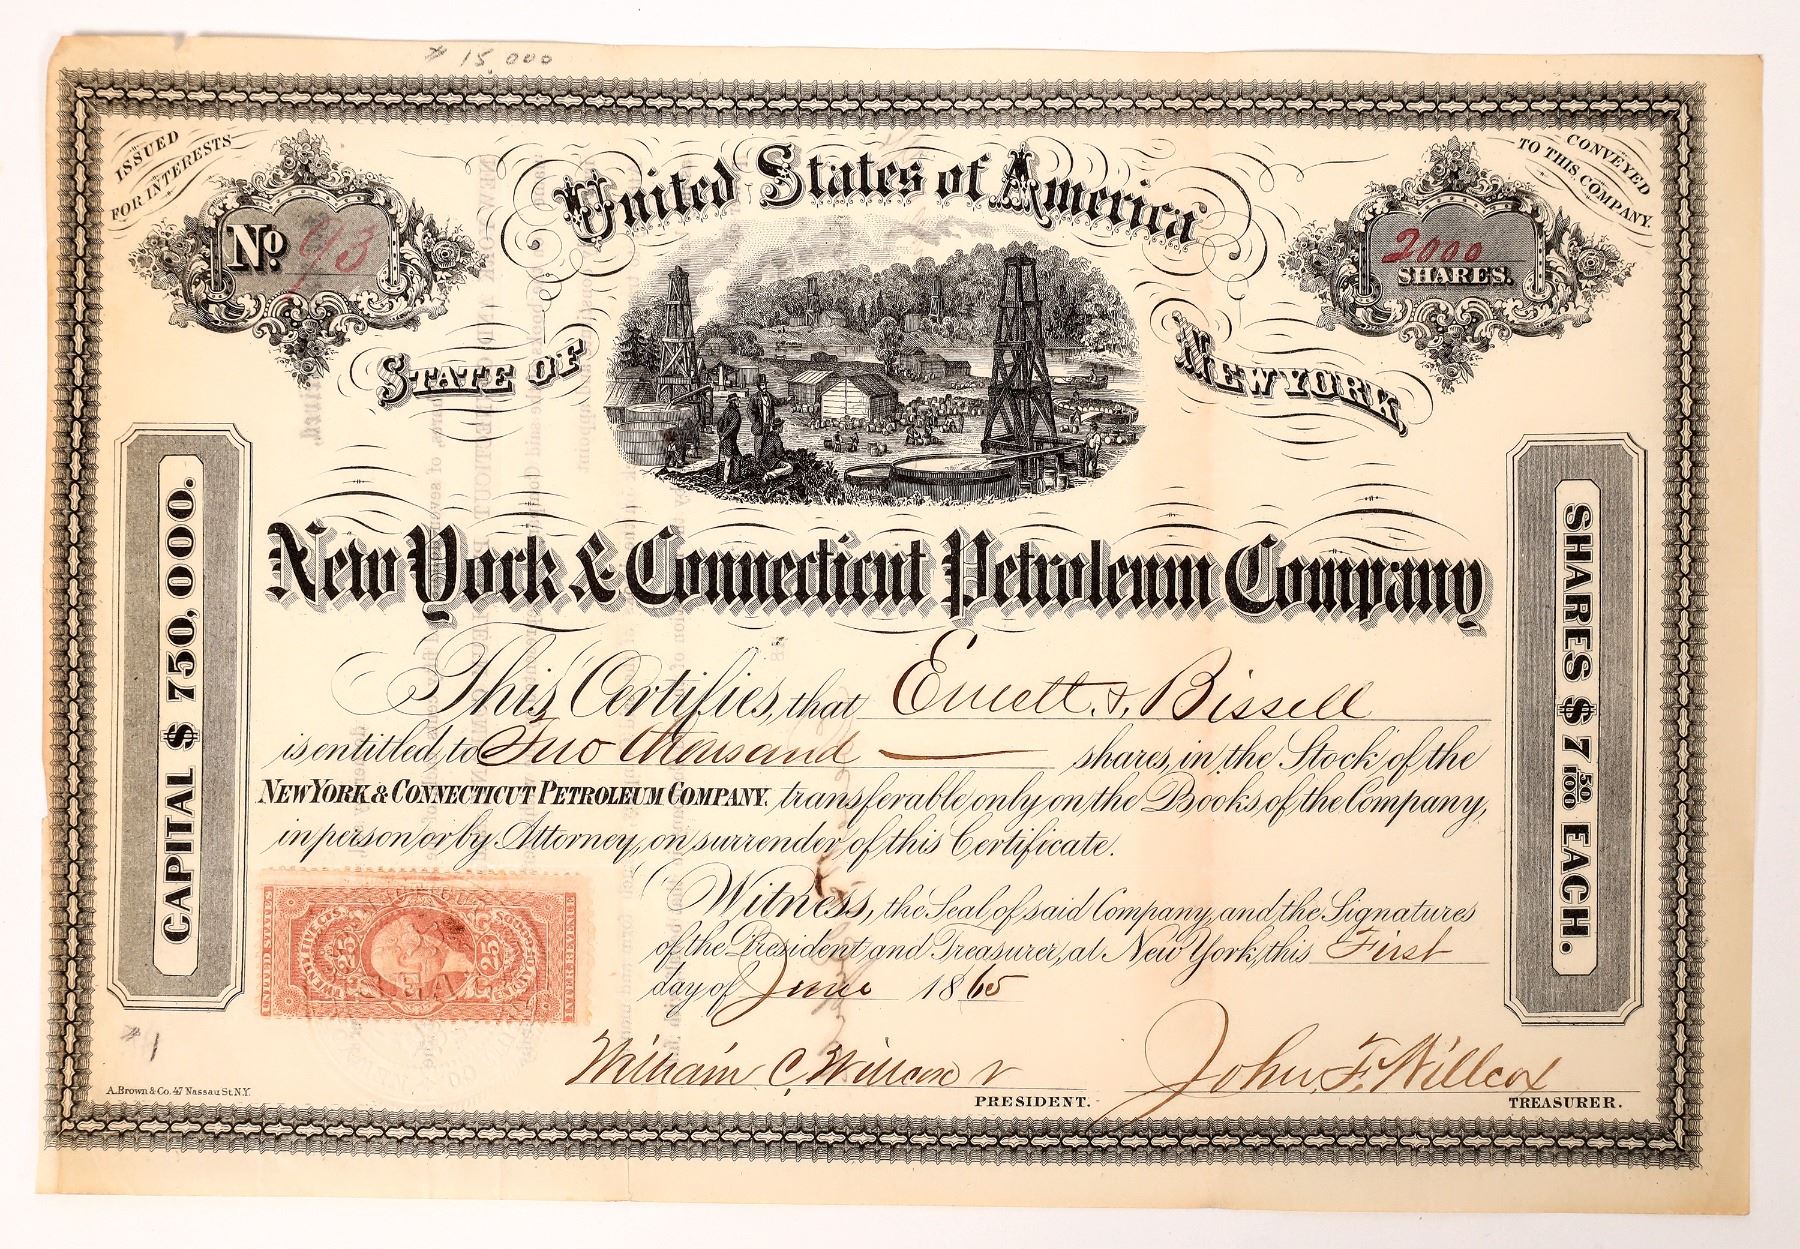 # 15,000
ISSUED
FOR INTERESTS
CONVEYED
TO THIS COMPANY.
United States of America
No. 93
2000
SHARES.
STATE OF
NEW YORK
CAPITAL $ 750,000.
SHARES $ 7 50/100 EACH.
New York & Connecticut Petroleum Company
This Certifies, that Emett & Bissell
is entitled to Two thousand shares, in the Stock of the
NEW YORK & CONNECTICUT PETROLEUM COMPANY. transferable only on the Books of the Company,
in person or by Attorney, on surrender of this Certificate.
Witness, the Seal of said Company, and the Signatures
of the President and Treasurer, at New York, this First
day of June 1865
UNITED STATES
INTER. REVENUE
25
25
# 1
William C. Willcox
PRESIDENT.
John F. Willcox
TREASURER.
A. Brown & Co. 47 Nassau St. N.Y.